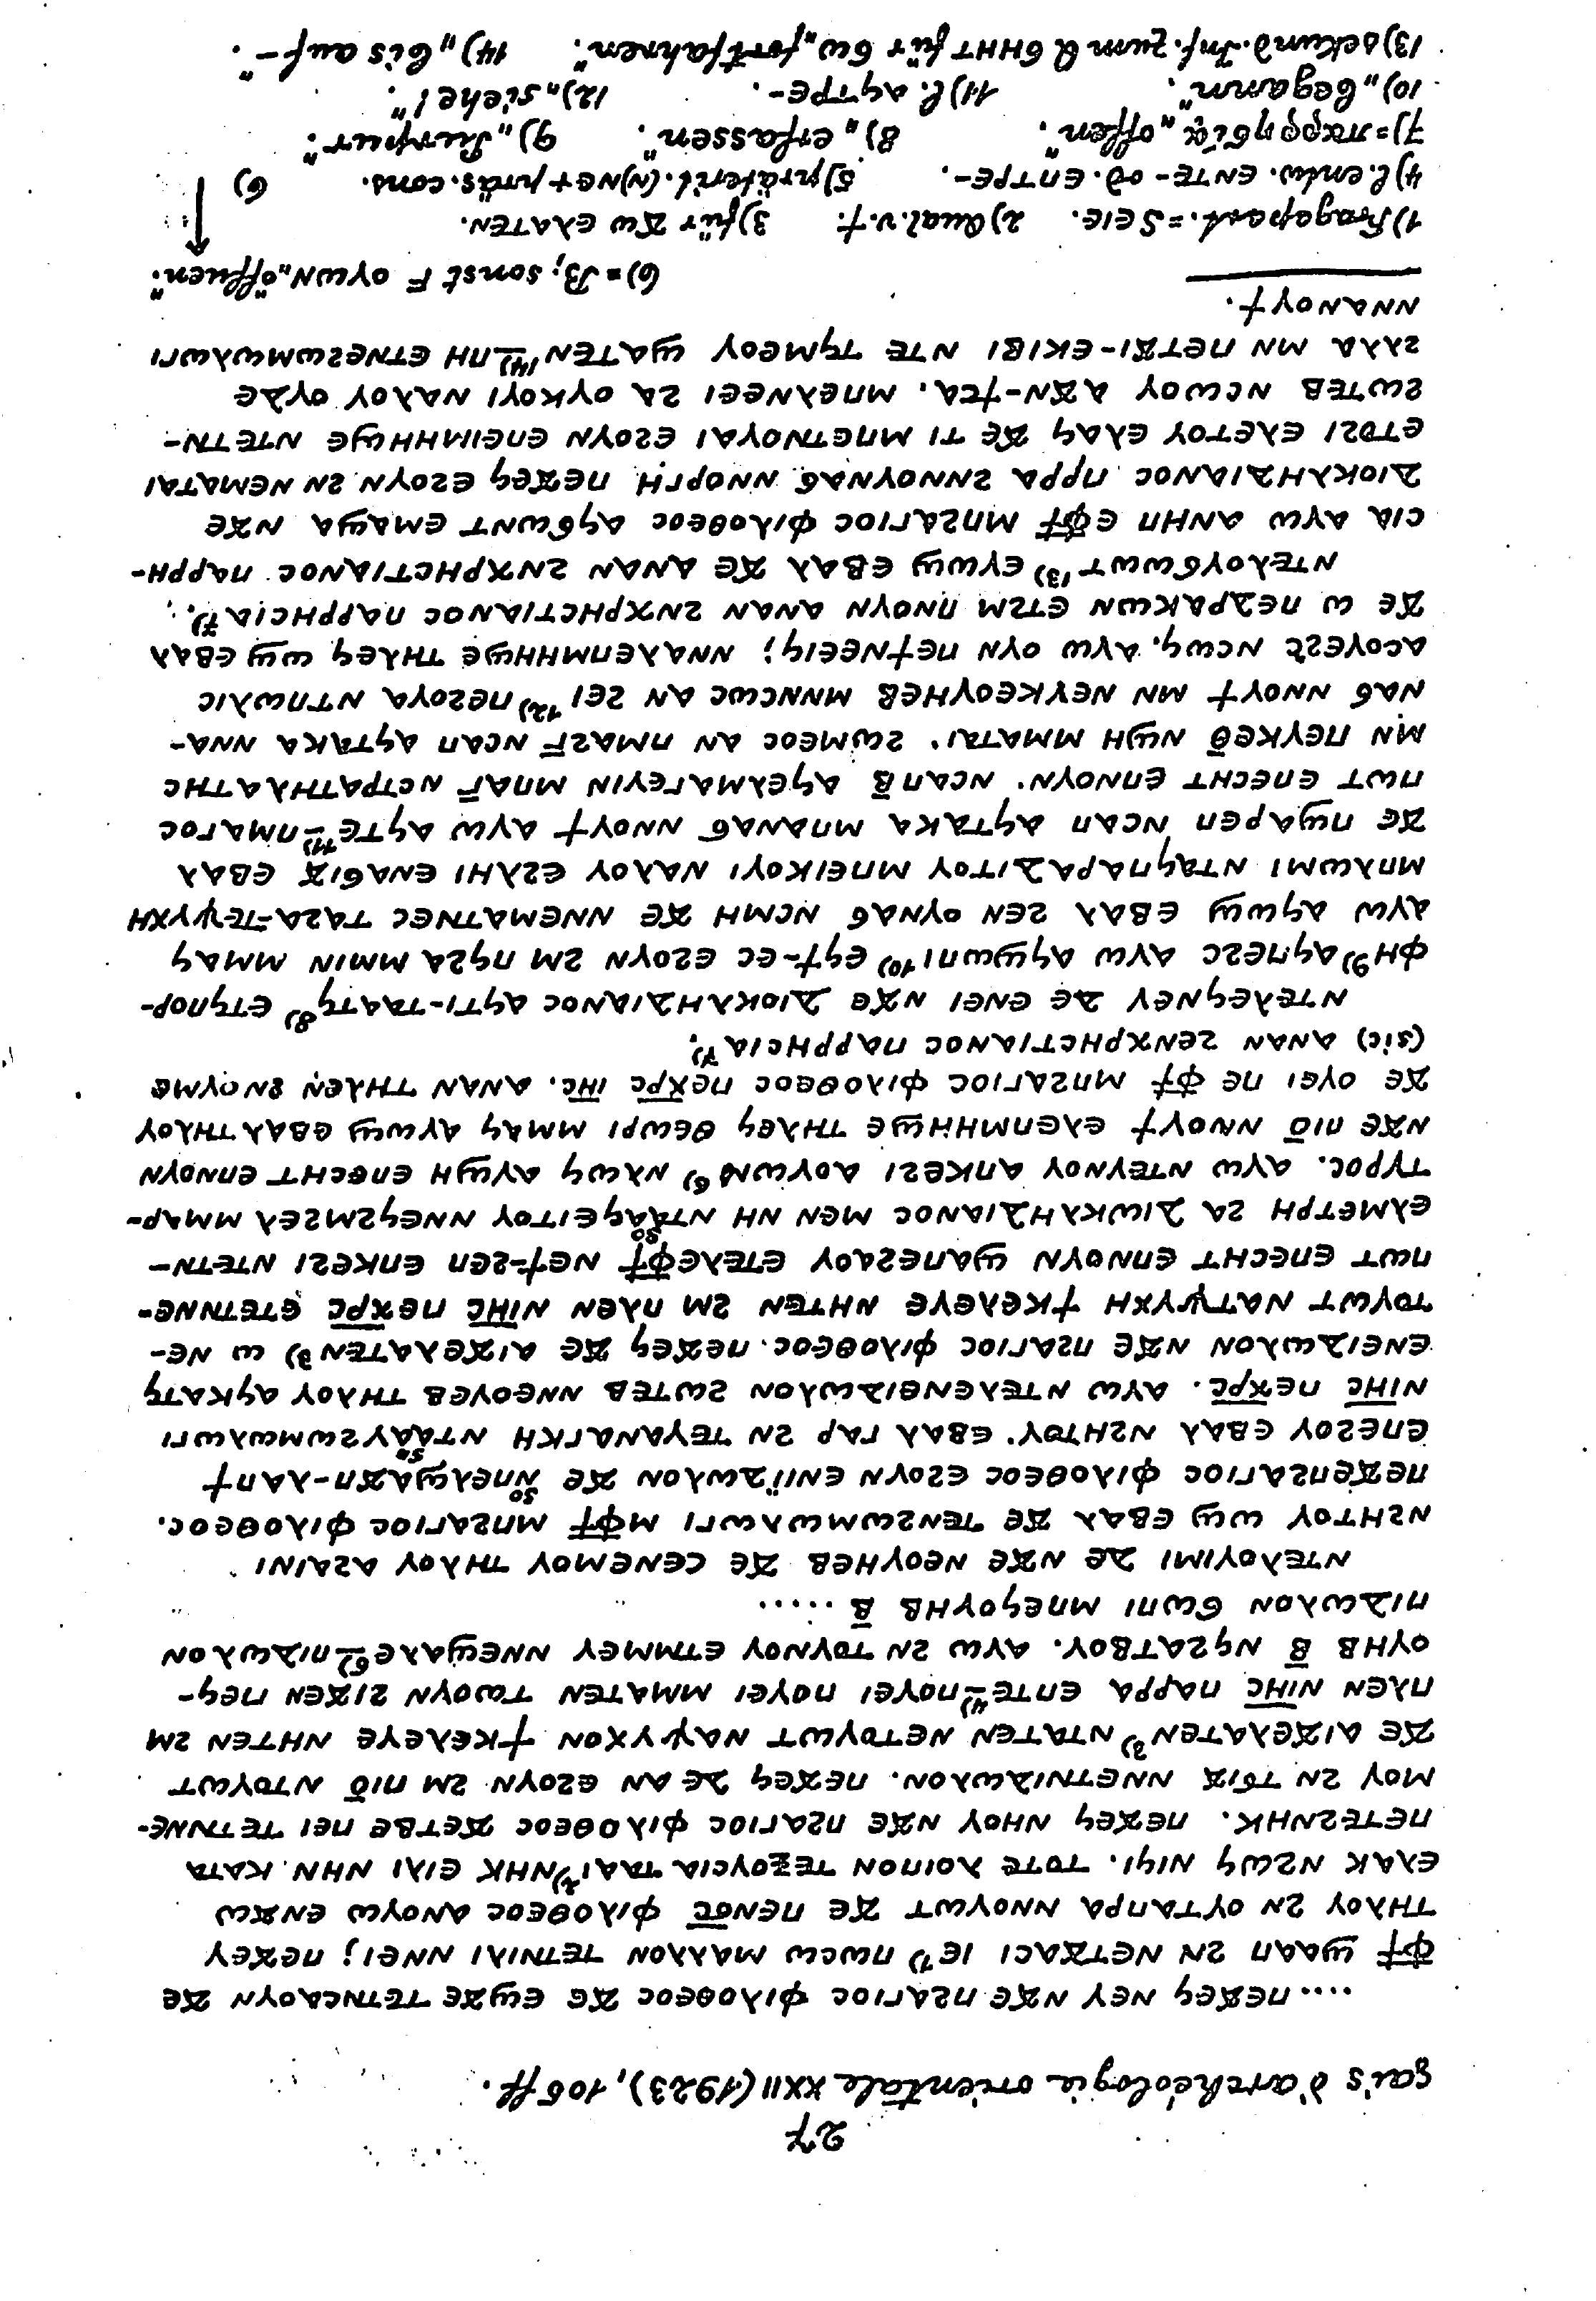 27
çais d'archéologie orientale XXII (1923), 106 ff.
.... ⲡⲉϫⲉϥ ⲛⲉⲩ ⲛϫⲉ ⲡϩⲁⲅⲓⲟⲥ ⲫⲓⲗⲟⲑⲉⲟⲥ ϫⲉ ⲉϣϫⲉ ⲧⲉⲧⲛⲥⲁⲟⲩⲛ ϫⲉ
ⲫϯ ϣⲁⲁⲡ ϩⲛ ⲛⲉⲧϫⲁⲥⲓ ⲓⲉ 1) ⲡⲱⲥⲱ ⲙⲁⲗⲗⲟⲛ ⲧⲉⲧⲛⲓⲗⲓ ⲛⲛⲉⲓ; ⲡⲉϫⲉⲩ
ⲧⲏⲗⲟⲩ ϩⲛ ⲟⲩⲧⲁⲡⲣⲁ ⲛⲛⲟⲩⲱⲧ ϫⲉ ⲡⲉⲛⲟ̅ⲥ̅ ⲫⲓⲗⲟⲑⲉⲟⲥ ⲁⲛⲟⲩⲱ ⲉⲛϫⲱ
ⲉⲗⲁⲕ ⲛϩⲱϥ ⲛⲓϥⲓ. ⲧⲟⲧⲉ ⲗⲟⲓⲡⲟⲛ ⲧⲉⲝⲟⲩⲥⲓⲁ ⲧⲁⲁⲓ 2) ⲛⲏⲕ ⲉⲓⲗⲓ ⲛⲏⲛ ⲕⲁⲧⲁ
ⲡⲉⲧⲉϩⲛⲏⲕ. ⲡⲉϫⲉϥ ⲛⲏⲟⲩ ⲛϫⲉ ⲡϩⲁⲅⲓⲟⲥ ⲫⲓⲗⲟⲑⲉⲟⲥ ϫⲉⲧⲃⲉ ⲡⲉⲓ ⲧⲉⲧⲛⲛⲉ-
ⲙⲟⲩ ϩⲛ ⲧϭⲓϫ ⲛⲛⲉⲧⲛⲓⲇⲱⲗⲟⲛ. ⲡⲉϫⲉϥ ⲇⲉ ⲁⲛ ⲉϩⲟⲩⲛ ϩⲙ ⲡⲓⲟ̅ ⲛⲧⲟⲩⲱⲧ
ϫⲉ ⲁⲓϫⲉⲗⲁⲧⲉⲛ 3) ⲛⲧⲁⲧⲉⲛ ⲛⲉⲧⲟⲩⲱⲧ ⲛⲁⲯⲩⲭⲟⲛ ϯⲕⲉⲗⲉⲩⲉ ⲛⲏⲧⲉⲛ ϩⲙ
ⲡⲗⲉⲛ ⲛⲓ̅ⲏ̅ⲥ̅ ⲡⲁⲣⲣⲁ ⲉⲡⲧⲉ- 4) ⲡⲟⲩⲉⲓ ⲡⲟⲩⲉⲓ ⲙⲙⲁⲧⲉⲛ ⲧⲱⲟⲩⲛ ϩⲓϫⲉⲛ ⲡⲉϥ-
ⲟⲩⲏⲃ ⲃ̅ ⲛϥϩⲁⲧⲃⲟⲩ. ⲁⲩⲱ ϩⲛ ⲧⲟⲩⲛⲟⲩ ⲉⲧⲙⲙⲉⲩ ⲛⲛⲉϣⲁⲗⲉ- ⲡⲓⲇⲱⲗⲟⲛ
ⲡⲓⲇⲱⲗⲟⲛ ϭⲱⲡⲓ ⲙⲡⲉϥⲟⲩⲏⲃ ⲃ̅ .....
ⲛⲧⲉⲗⲟⲩⲓⲙⲓ ⲇⲉ ⲛϫⲉ ⲛⲉⲟⲩⲏⲉⲃ ϫⲉ ⲥⲉⲛⲉⲙⲟⲩ ⲧⲏⲗⲟⲩ ⲁϩⲁⲓⲛⲓ
ⲛϩⲏⲧⲟⲩ ⲱϣ ⲉⲃⲁⲗ ϫⲉ ⲧⲉⲛϩⲱⲙⲱⲗⲱⲅⲓ ⲙⲫϯ ⲙⲡϩⲁⲅⲓⲟⲥ ⲫⲓⲗⲟⲑⲉⲟⲥ.
ⲡⲉϫⲉⲡϩⲁⲅⲓⲟⲥ ⲫⲓⲗⲟⲑⲉⲟⲥ ⲉϩⲟⲩⲛ ⲉⲛⲓⲓ̈ⲇⲱⲗⲟⲛ ϫⲉ ⲛⲡⲉⲗϣⲁϫⲡ-ⲗⲁⲡϯ
ⲉⲡⲉϩⲟⲩ ⲉⲃⲁⲗ ⲛϩⲏⲧⲟⲩ. ⲉⲃⲁⲗ ⲅⲁⲣ ϩⲛ ⲧⲉⲩⲁⲛⲁⲅⲕⲏ ⲛⲧⲁⲁⲩϩⲱⲙⲱⲗⲱⲅⲓ
ⲛⲓ̅ⲏ̅ⲥ̅ ⲡⲉⲭ̅ⲣ̅ⲥ̅. ⲁⲩⲱ ⲛⲧⲉⲗⲉⲛⲉⲓⲇⲱⲗⲟⲛ ϩⲱⲧⲉⲃ ⲛⲛⲉⲟⲩⲉⲃ ⲧⲏⲗⲟⲩ ⲁϥⲕⲁⲧϥ
ⲉⲛⲉⲓⲇⲱⲗⲟⲛ ⲛϫⲉ ⲡϩⲁⲅⲓⲟⲥ ⲫⲓⲗⲟⲑⲉⲟⲥ. ⲡⲉϫⲉϥ ϫⲉ ⲁⲓϫⲉⲗⲁⲧⲉⲛ 3) ⲱ ⲛⲉ-
ⲧⲟⲩⲱⲧ ⲛⲁⲧⲯⲩⲭⲏ ϯⲕⲉⲗⲉⲩⲉ ⲛⲏⲧⲉⲛ ϩⲙ ⲡⲗⲉⲛ ⲛⲓ̅ⲏ̅ⲥ̅ ⲡⲉⲭ̅ⲣ̅ⲥ̅ ⲉⲧⲉⲧⲛⲛⲉ-
ⲡⲱⲧ ⲉⲡⲉⲥⲏⲧ ⲉⲡⲛⲟⲩⲛ ϣⲁⲡⲉϩⲁⲟⲩ ⲉⲧⲉⲗⲉⲫϯ ⲛⲉϯ-ϩⲉⲡ ⲉⲡⲕⲉϩⲓ ⲛⲧⲉⲧⲛ-
ⲉⲗⲙⲉⲧⲣⲏ ϩⲁ ⲇⲓⲱⲕⲗⲏⲇⲓⲁⲛⲟⲥ ⲙⲉⲛ ⲛⲏ ⲛⲧⲁⲁϥⲉⲓⲧⲟⲩ ⲛⲛⲉϥϩⲙϩⲉⲗ ⲙⲙⲁⲣ-
ⲧⲩⲣⲟⲥ. ⲁⲩⲱ ⲛⲧⲉⲩⲛⲟⲩ ⲁⲡⲕⲉϩⲓ ⲁⲟⲩⲱⲛ 6) ⲛⲗⲱϥ ⲁⲩϣⲏ ⲉⲡⲉⲥⲏⲧ ⲉⲡⲛⲟⲩⲛ
ⲛϫⲉ ⲡⲓⲟ̅ ⲛⲛⲟⲩϯ ⲉⲗⲉⲡⲙⲏⲏϣⲉ ⲧⲏⲗⲉϥ ⲑⲉⲱⲣⲓ ⲙⲙⲁϥ ⲁⲩⲱϣ ⲉⲃⲁⲗ ⲧⲏⲗⲟⲩ
ϫⲉ ⲟⲩⲉⲓ ⲡⲉ ⲫϯ ⲙⲡϩⲁⲅⲓⲟⲥ ⲫⲓⲗⲟⲑⲉⲟⲥ ⲡⲉⲭ̅ⲣ̅ⲥ̅ ⲓ̅ⲏ̅ⲥ̅. ⲁⲛⲁⲛ ⲧⲏⲗⲉⲛ ϩⲛⲟⲩⲙⲉ
(sic) ⲁⲛⲁⲛ ϩⲉⲛⲭⲣⲏⲥⲧⲓⲁⲛⲟⲥ ⲡⲁⲣⲣⲏⲥⲓⲁ 7).
ⲛⲧⲉⲗⲉϥⲛⲉⲩ ⲇⲉ ⲉⲛⲉⲓ ⲛϫⲉ ⲇⲓⲟⲕⲗⲏⲇⲓⲁⲛⲟⲥ ⲁϥⲧⲓ-ⲧⲁⲁⲧϥ 8) ⲉⲧϥⲡⲟⲣ-
ⲫⲏ 9) ⲁϥⲡⲉϩⲥ ⲁⲩⲱ ⲁϥϣⲱⲡⲓ 10) ⲉϥϯ-ⲉⲥ ⲉϩⲟⲩⲛ ϩⲙ ⲡϥϩⲁ ⲙⲙⲓⲛ ⲙⲙⲁϥ
ⲁⲩⲱ ⲁϥⲱϣ ⲉⲃⲁⲗ ϩⲉⲛ ⲟⲩⲛⲁϭ ⲛⲥⲙⲏ ϫⲉ ⲛⲛⲉⲙⲁⲧⲛⲉⲥ ⲧⲁϩⲁ-ⲧⲉⲯⲩⲭⲏ
ⲙⲡⲗⲱⲙⲓ ⲛⲧⲁϥⲡⲁⲣⲁⲇⲓⲧⲟⲩ ⲙⲡⲉⲓⲕⲟⲩⲓ ⲛⲁⲗⲟⲩ ⲉϩⲗⲏⲓ ⲉⲛⲁϭⲓϫ ⲉⲃⲁⲗ
ϫⲉ ⲡϣⲁⲣⲉⲡ ⲛⲥⲁⲡ ⲁϥⲧⲁⲕⲁ ⲙⲡⲁⲛⲁϭ ⲛⲛⲟⲩϯ ⲁⲩⲱ ⲁϥⲧⲉ- 11) ⲡⲙⲁⲅⲟⲥ
ⲡⲱⲧ ⲉⲡⲉⲥⲏⲧ ⲉⲡⲛⲟⲩⲛ. ⲛⲥⲁⲡ ⲃ̅ ⲁϥⲉⲗⲙⲁⲅⲉⲩⲓⲛ ⲙⲡⲁⲅ̅ ⲛⲥⲧⲣⲁⲧⲏⲗⲁⲧⲏⲥ
ⲙⲛ ⲡⲉⲩⲕⲉⲑ̅ ⲛϣⲏ ⲙⲙⲁⲧⲁⲓ. ϩⲱⲙⲉⲟⲥ ⲁⲛ ⲡⲙⲁϩⲅ̅ ⲛⲥⲁⲡ ⲁϥⲧⲁⲕⲁ ⲛⲛⲁ-
ⲛⲁϭ ⲛⲛⲟⲩϯ ⲙⲛ ⲛⲉⲩⲕⲉⲟⲩⲏⲉⲃ ⲙⲛⲛⲥⲱⲥ ⲁⲛ ϩⲉⲓ 12) ⲡⲉϩⲟⲩⲁ ⲛⲧⲡⲱⲗⲓⲥ
ⲁⲥⲟⲩⲉϩⲥ ⲛⲥⲱϥ. ⲁⲩⲱ ⲟⲩⲛ ⲡⲉϯⲛⲉⲉⲓϥ; ⲛⲛⲁⲗⲉⲡⲙⲏⲏϣⲉ ⲧⲏⲗⲉϥ ⲱϣ ⲉⲃⲁⲗ
ϫⲉ ⲱ ⲡⲉⲇⲣⲁⲕⲱⲛ ⲉⲧϩⲙ ⲡⲛⲟⲩⲛ ⲁⲛⲁⲛ ϩⲛⲭⲣⲏⲥⲧⲓⲁⲛⲟⲥ ⲡⲁⲣⲣⲏⲥⲓⲁ 7).
ⲛⲧⲉⲗⲟⲩϭⲱⲱⲧ 13) ⲉⲩⲱϣ ⲉⲃⲁⲗ ϫⲉ ⲁⲛⲁⲛ ϩⲛⲭⲣⲏⲥⲧⲓⲁⲛⲟⲥ ⲡⲁⲣⲣⲏ-
ⲥⲓⲁ ⲁⲩⲱ ⲁⲛⲏⲡ ⲉⲫϯ ⲙⲡϩⲁⲅⲓⲟⲥ ⲫⲓⲗⲟⲑⲉⲟⲥ ⲁϥϭⲱⲛⲧ ⲉⲙⲁϣⲁ ⲛϫⲉ
ⲇⲓⲟⲕⲗⲏⲇⲓⲁⲛⲟⲥ ⲡⲣⲣⲁ ϩⲛⲛⲟⲩⲛⲁϭ ⲛⲛⲟⲣⲅⲏ ⲡⲉϫⲉϥ ⲉϩⲟⲩⲛ ϩⲛ ⲛⲉⲙⲁⲧⲁⲓ
ⲉⲧⲟϩⲓ ⲉⲗⲉⲧⲟⲩ ⲉⲗⲁϥ ϫⲉ ⲧⲓ ⲙⲡⲉⲧⲛⲟⲩⲁⲓ ⲉϩⲟⲩⲛ ⲉⲡⲉⲓⲙⲏⲏϣⲉ ⲛⲧⲉⲧⲛ-
ϩⲱⲧⲉⲃ ⲛⲥⲱⲟⲩ ⲁϫⲛ-ϯⲥⲁ. ⲙⲡⲉⲗⲛⲉⲉⲓ ϩⲁ ⲟⲩⲕⲟⲩⲓ ⲛⲁⲗⲟⲩ ⲟⲩⲇⲉ
ϩⲗⲗⲁ ⲙⲛ ⲡⲉⲧϫⲓ-ⲉⲕⲓⲃⲓ ⲛⲧⲉ ⲧϥⲙⲉⲟⲩ ϣⲁⲧⲉⲛ- 14) ⲡⲏ ⲉⲧⲛⲉϩⲱⲙⲱⲗⲱⲅⲓ
ⲛⲛⲁⲛⲟⲩϯ.
6) = B; sonst F ⲟⲩⲱⲛ „öffnen“.
1) Fragepart. = S ⲉⲓⲉ. 2) Qual. v. ϯ 3) für ϫⲱ ⲉⲗⲁⲧⲉⲛ.
4) l. entw. ⲉⲛⲧⲉ- od. ⲉⲡⲧⲣⲉ-. 5) präterit. (ⲛ)ⲛⲉ + präs. cons. 6)
7) = παρρησίᾳ „offen“. 8) „erfassen“. 9) „Purpur“.
10) „begann“. 11) l. ⲁϥⲧⲣⲉ-. 12) „siehe!“.
13) sekund. Inf. zum Q ϭⲏⲏⲧ für ϭⲱ „fortfahren“. 14) „bis auf-“.